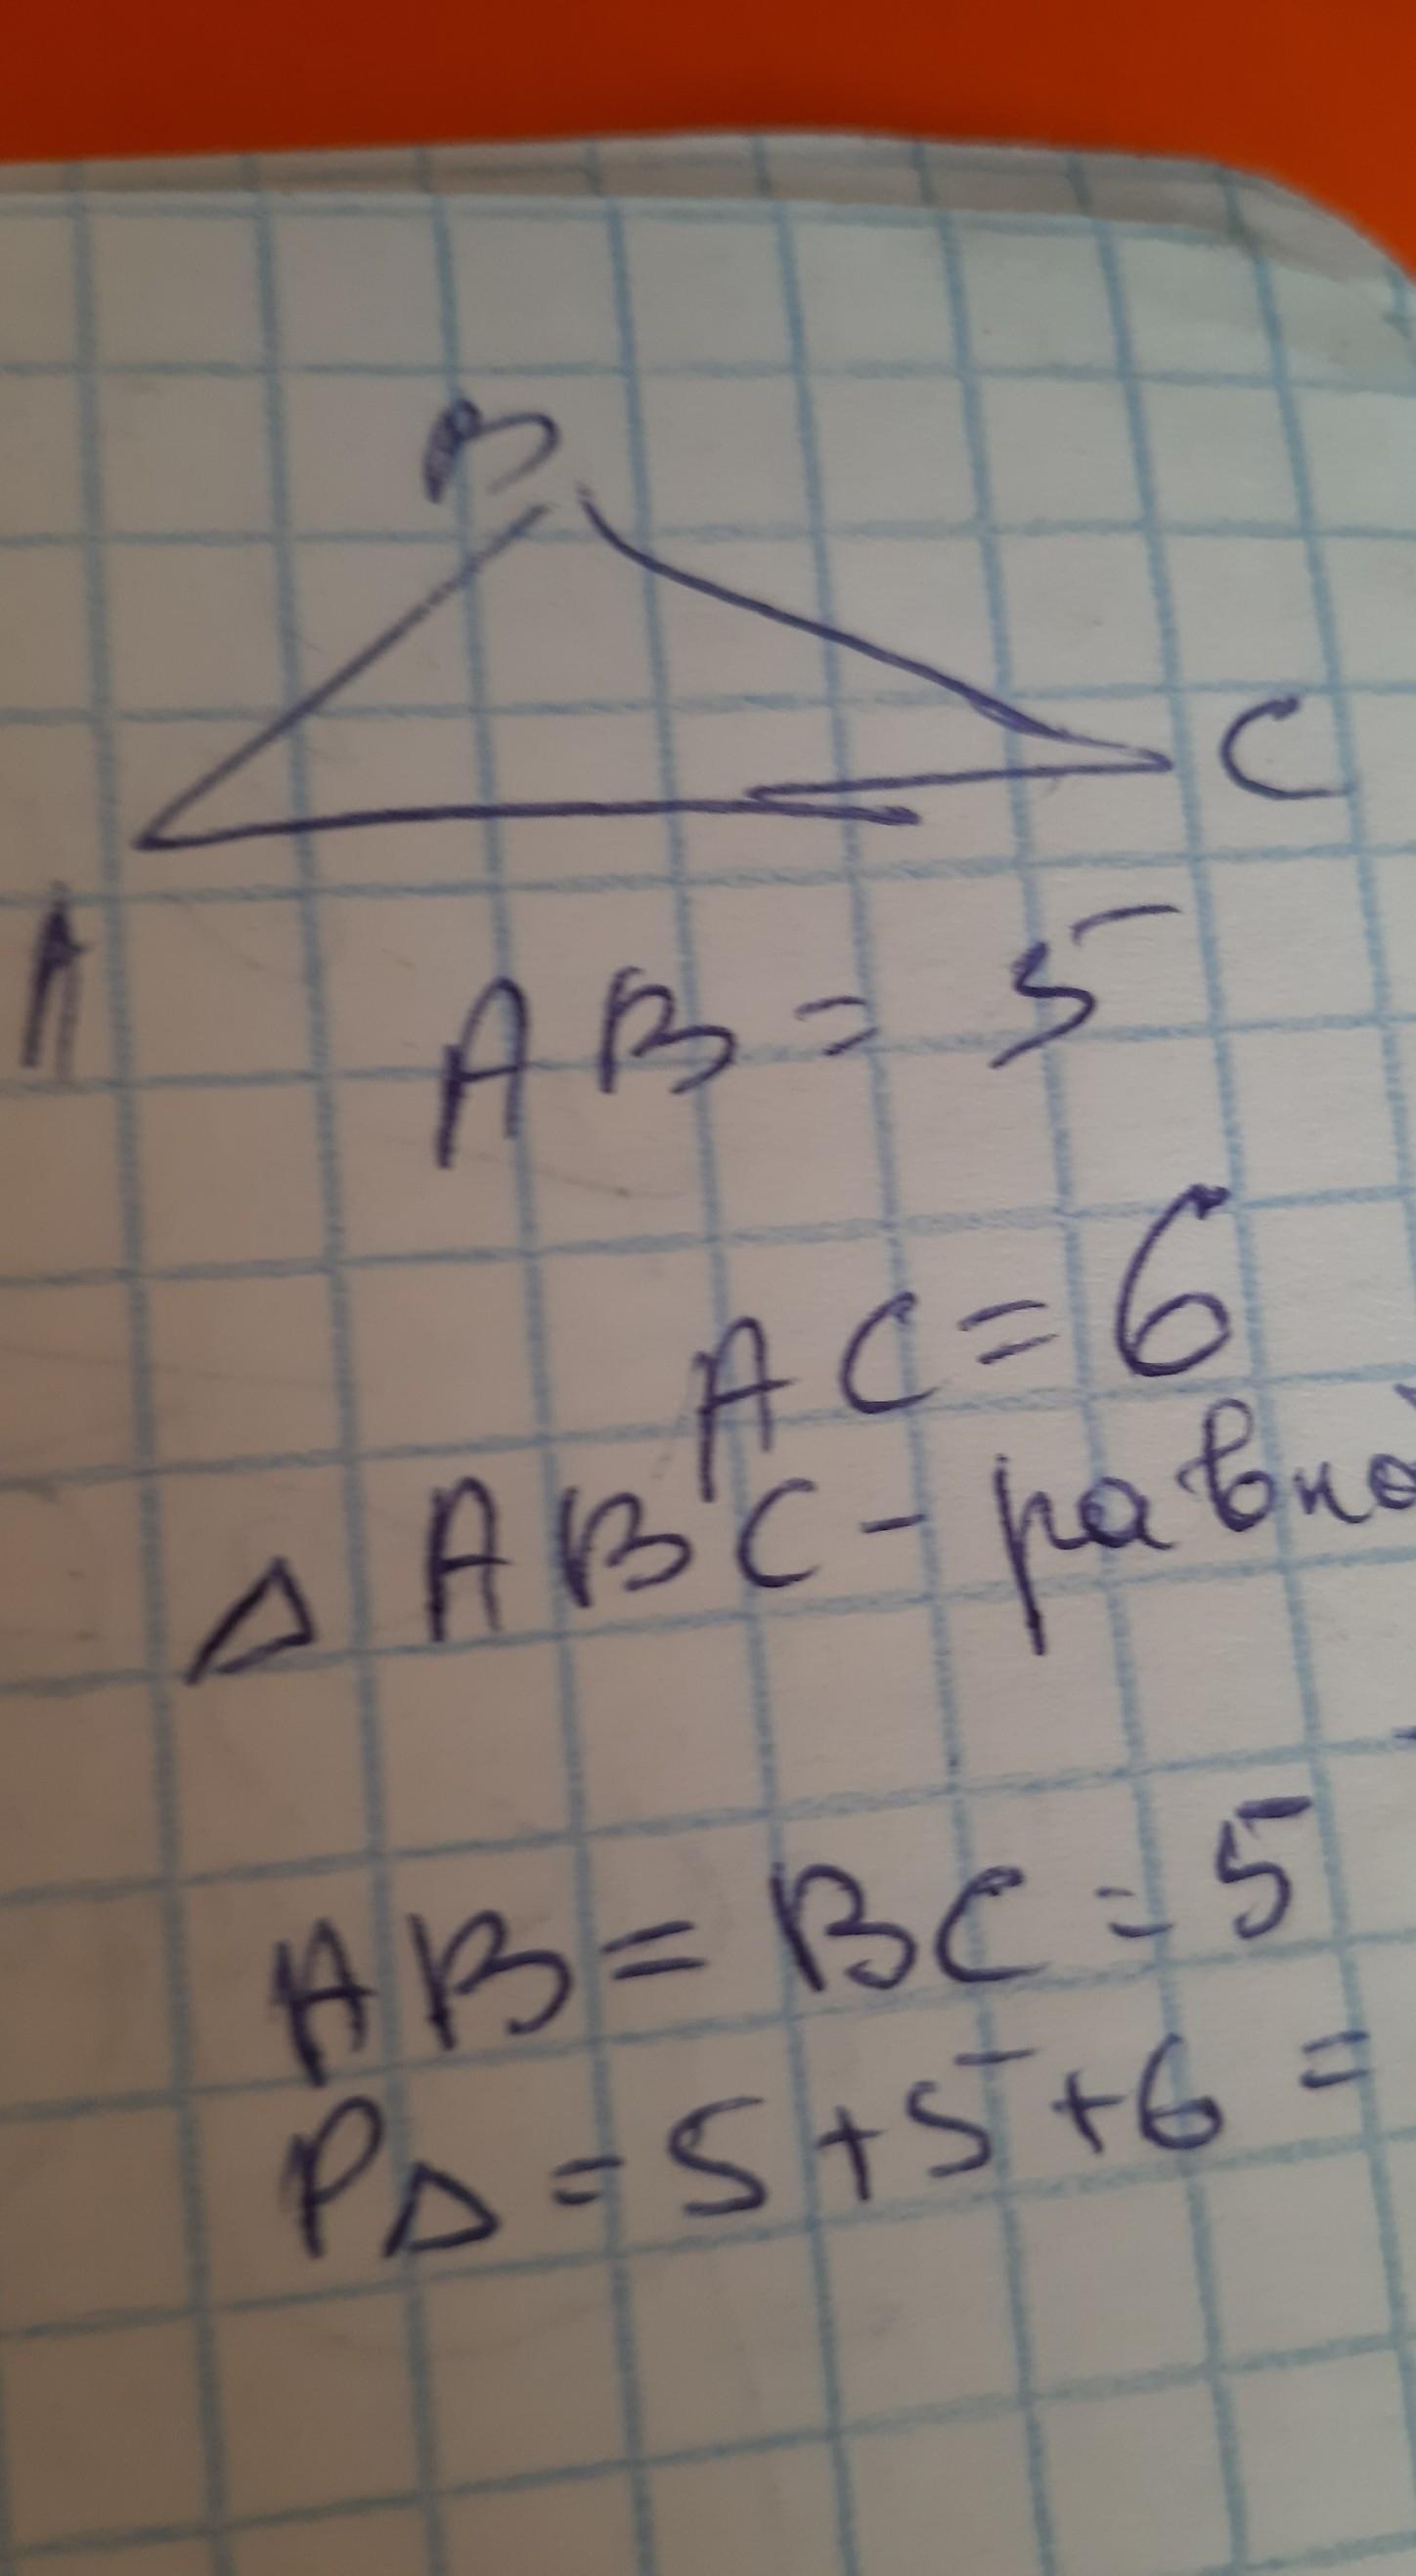 B
C
A
AB = 5
AC = 6
Δ ABC - равно
AB = BC = 5
PΔ = 5 + 5 + 6 =